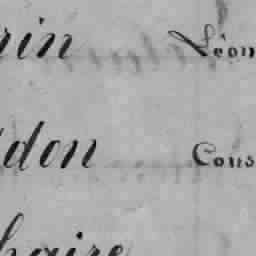 rin Léon
don Cons
haire